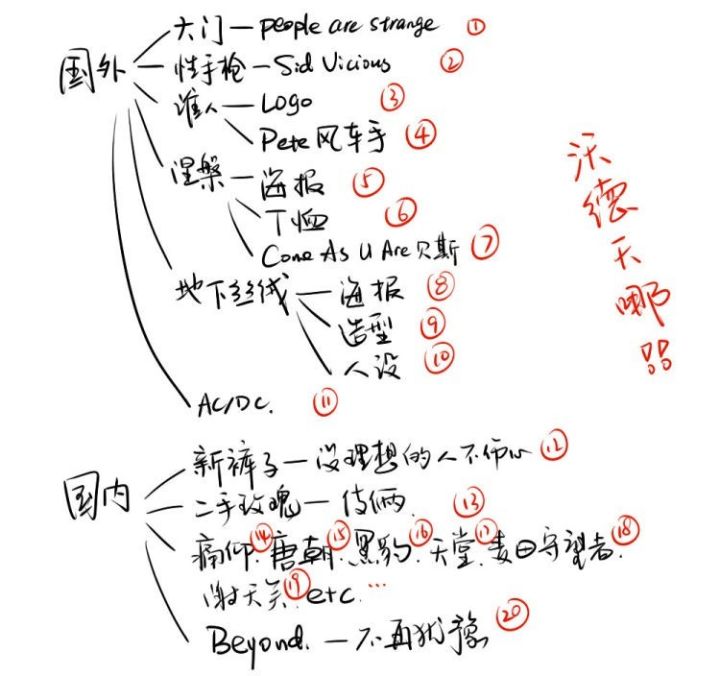 国外
大门—people are strange ①
性手枪—Sid Vicious ②
谁人—Logo ③
Pete风车手 ④
涅槃—海报 ⑤
T恤 ⑥
Come As U Are 贝斯 ⑦
地下丝绒—海报 ⑧
造型 ⑨
人设 ⑩
AC/DC. ⑪
沃德天哪!!
国内
新裤子—没理想的人不伤心 ⑫
二手玫瑰—伎俩 ⑬
痛仰⑭.唐朝⑮.黑豹⑯.天堂⑰.麦田守望者⑱.
谢天笑⑲.etc...
Beyond.—不再犹豫 ⑳